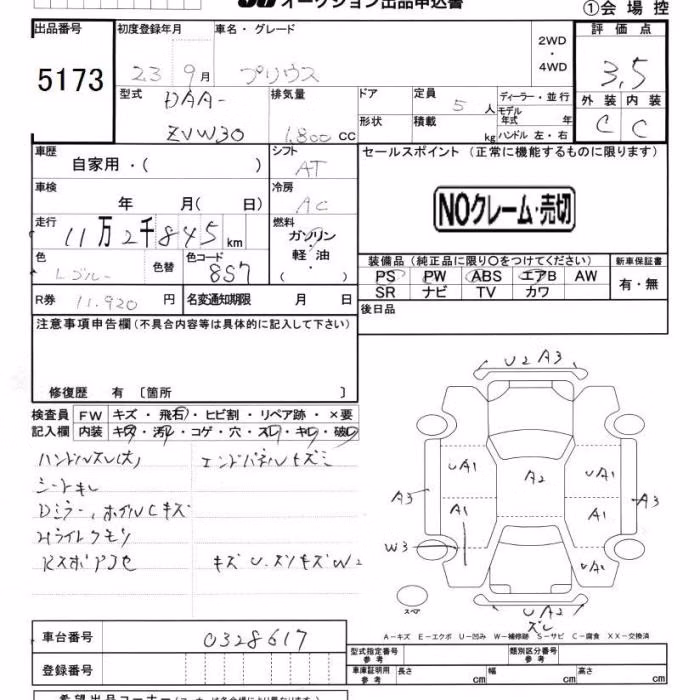 オークション出品申込書
①会場控
出品番号
5173
初度登録年月
23 9月
車名・グレード
プリウス
2WD
・
4WD
評価点
3.5
外装 内装
C C
型式
DAA-
ZVW30
排気量
1,800 cc
ドア
形状
定員
5 人
積載
kg
ディーラー・並行
モデル年式 年
ハンドル 左・右
車歴
自家用・( )
シフト
AT
セールスポイント (正常に機能するものに限ります)
NOクレーム・売切
車検
年 月( 日)
冷房
AC
走行
11万2千845km
燃料
ガソリン
軽油
( )
色
Lブルー
色替
色コード
8S7
装備品(純正品に限り○をつけてください)
PS PW ABS エアB AW
SR ナビ TV カワ
新車保証書
有・無
R券 11.920 円
名変通知期限 月 日
後日品
注意事項申告欄(不具合内容等は具体的に記入して下さい)
修復歴 有〔箇所 〕
検査員 FW キズ・飛石・ヒビ割・リペア跡・×要
記入欄 内装 キズ・汚レ・コゲ・穴・スレ・キレ・破レ
ハンドルスレ(大) エンドパネルキズミ
シートキレ
Dミラー,ホイルCキズ
Hライトクモリ
キズU.スリキズW2
U2 A3
UA1 A2 UA1
A3 A1 A1 A3
W3 UA1
UA2
ズレ
スペア
A-キズ E-エクボ U-凹み W-補修跡 S-サビ C-腐食 XX-交換済
車台番号 0328617
登録番号
型式指定番号 参考
類別区分番号 参考
車庫証明用 参考 長さ cm 幅 cm 高さ cm
希望出品コーナー